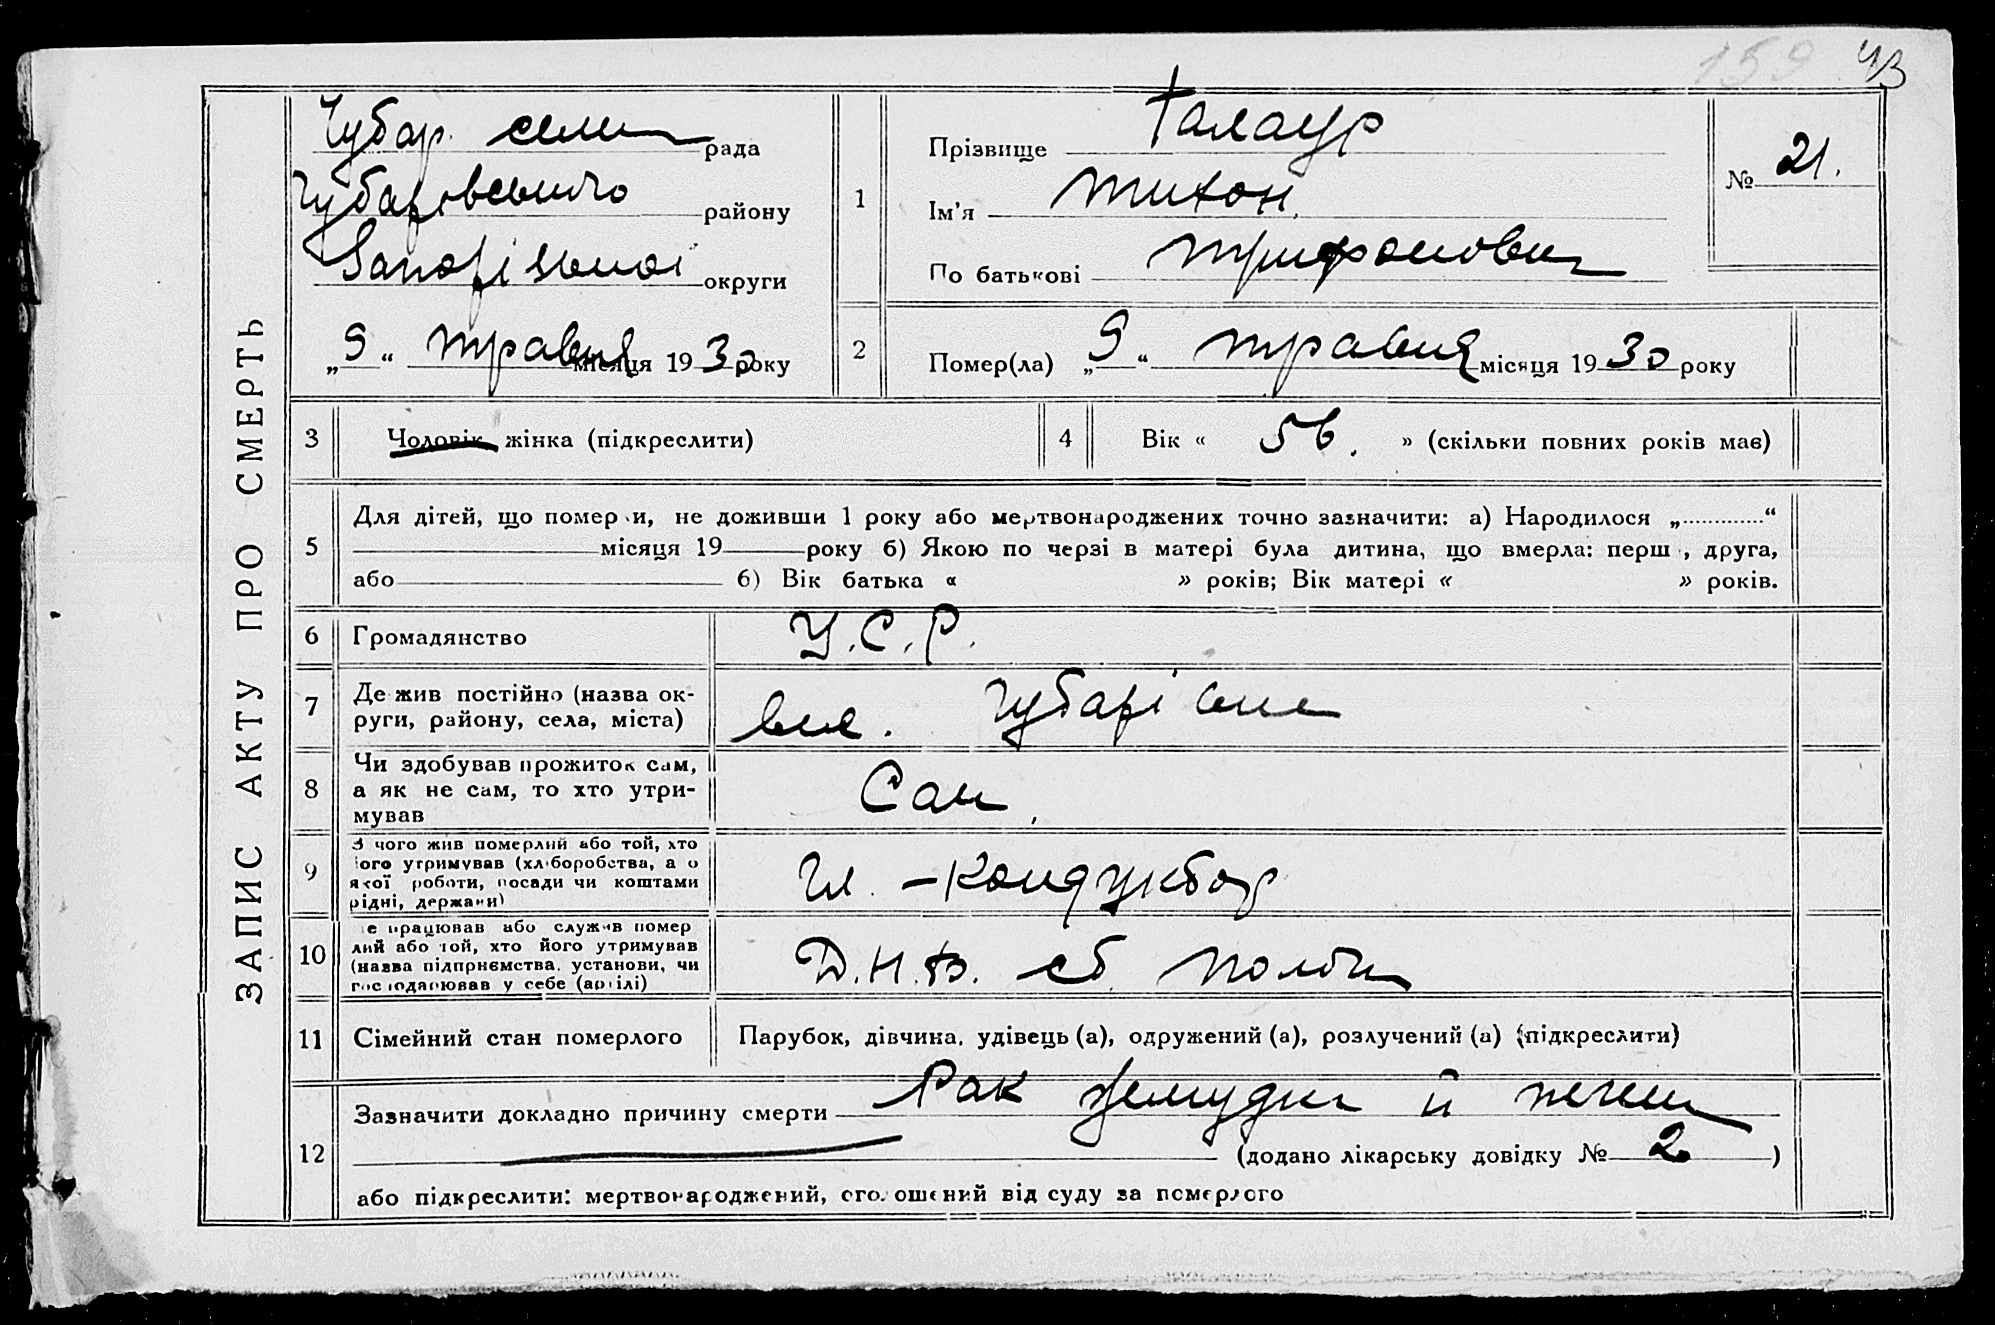 159 43
ЗАПИС АКТУ ПРО СМЕРТЬ
Чубар. сели рада
Чубаровського району
Запорізької округи
„ 9 “ травня місяця 19 30 року
1
Прізвище Галаур
Ім'я Тихон.
По батькові Трифонович
№ 21.
2 Помер(ла) „ 9 “ травня місяця 19 30 року
3 Чоловік жінка (підкреслити)
4 Вік « 56. » (скільки повних років має)
5 Для дітей, що померли, не доживши 1 року або мертвонароджених точно зазначити: а) Народилося „ “
місяця 19 року б) Якою по черзі в матері була дитина, що вмерла: перш , друга,
або б) Вік батька « » років; Вік матері « » років.
6 Громадянство У.С.Р.
7 Де жив постійно (назва ок-
руги, району, села, міста) вел. Чубарі
8 Чи здобував прожиток сам,
а як не сам, то хто утри-
мував Сам.
9 З чого жив померлий або той, хто
його утримував (хліборобства, а о
якої роботи, посади чи коштами
рідні, держави) Гл. - Кондуктор
10 е працював або служив помер
лий або той, хто його утримував
(назва підприємства, установи, чи
господарював у себе (артілі) ст. Пологи
11 Сімейний стан померлого Парубок, дівчина, удівець (а), одружений (а), розлучений (а) (підкреслити)
12 Зазначити докладно причину смерти Рак желудка и печени
(додано лікарську довідку № 2 )
або підкреслити: мертвонароджений, оголошений від суду за померлого